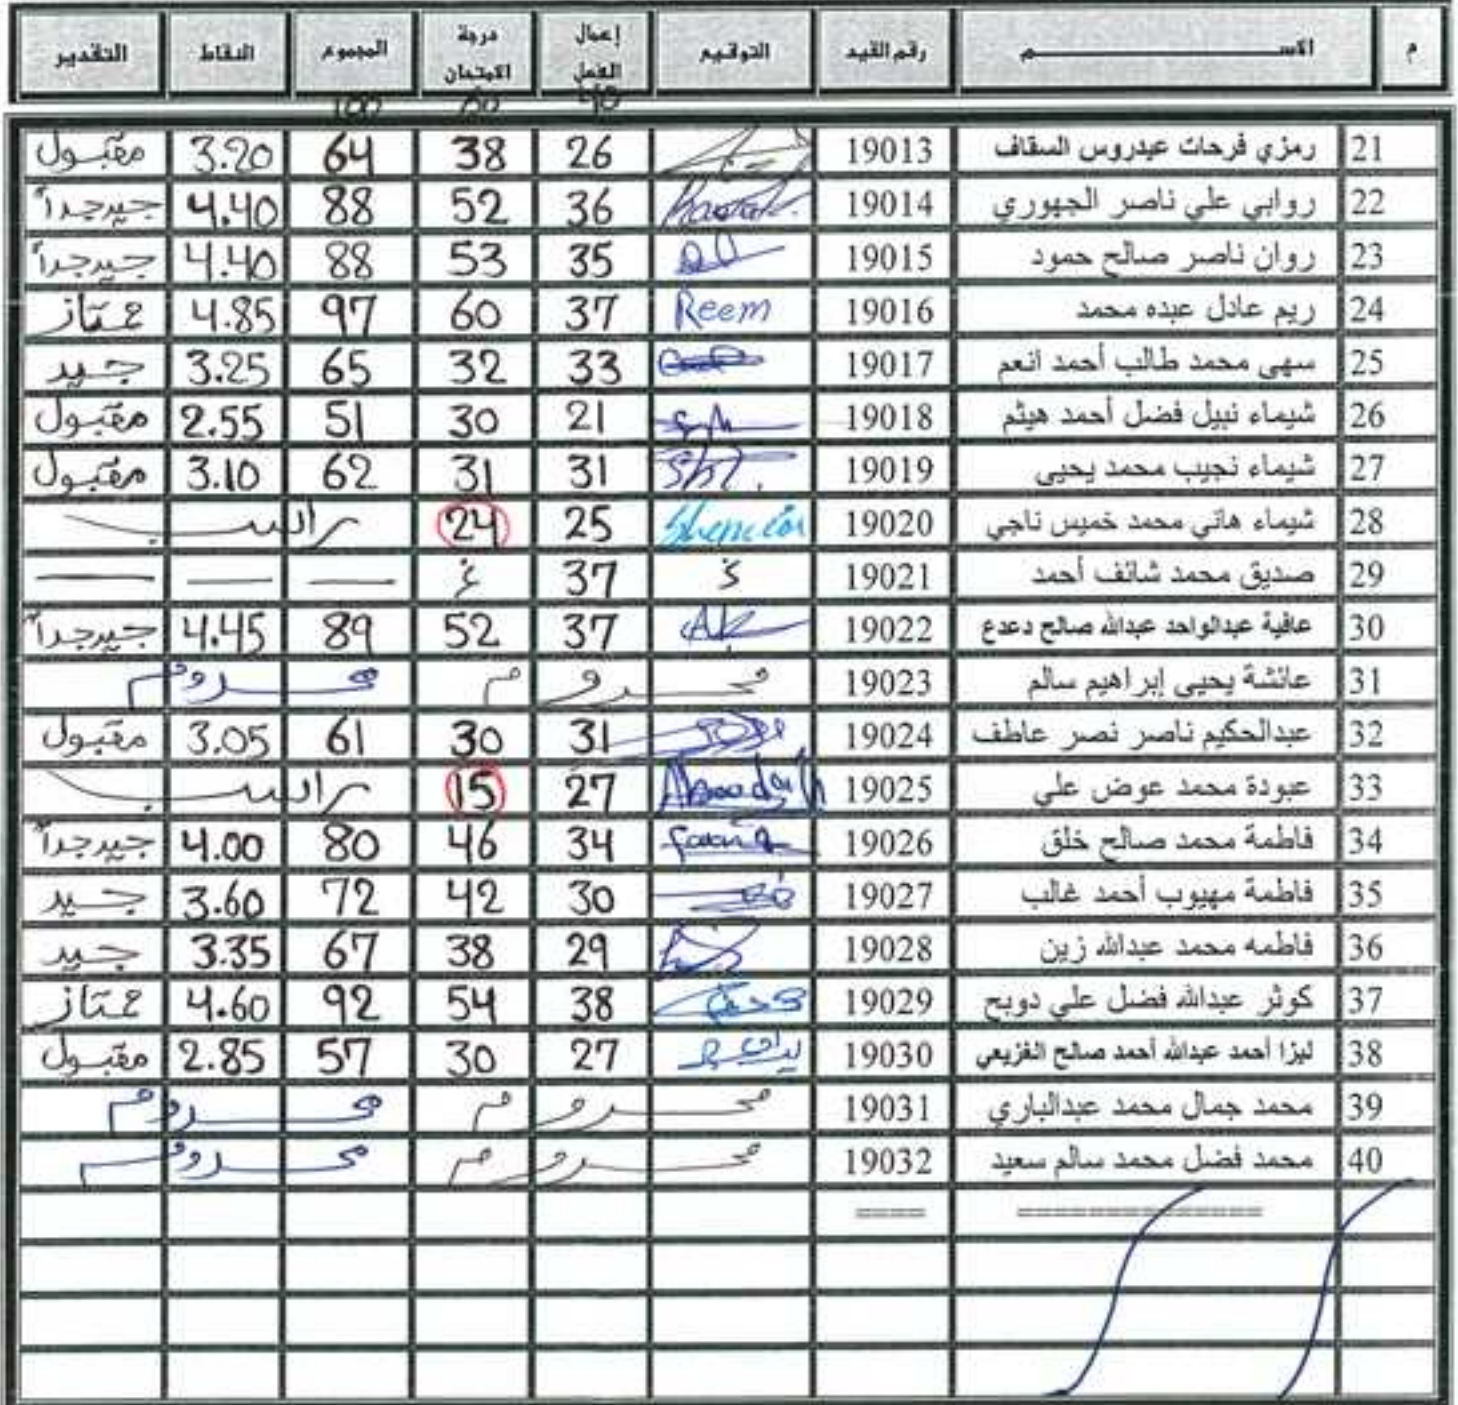 م الاســـم رقم القيد التوقيع إعمال الفصل درجة الامتحان المجموع النقاط التقدير
40 60 100
21 رمزي فرحات عيدروس السقاف 19013 26 38 64 3.20 مقبول
22 روابي علي ناصر الجهوري 19014 36 52 88 4.40 جيد جداً
23 روان ناصر صالح حمود 19015 35 53 88 4.40 جيد جداً
24 ريم عادل عبده محمد 19016 Reem 37 60 97 4.85 ممتاز
25 سهى محمد طالب أحمد انعم 19017 33 32 65 3.25 جيد
26 شيماء نبيل فضل أحمد هيثم 19018 21 30 51 2.55 مقبول
27 شيماء نجيب محمد يحيى 19019 31 31 62 3.10 مقبول
28 شيماء هاني محمد خميس ناجي 19020 25 24 راسب
29 صديق محمد شائف أحمد 19021 غ 37 غ — — —
30 عافية عبدالواحد عبدالله صالح دعدع 19022 37 52 89 4.45 جيد جداً
31 عائشة يحيى إبراهيم سالم 19023 محروم محروم
32 عبدالحكيم ناصر نصر عاطف 19024 31 30 61 3.05 مقبول
33 عبودة محمد عوض علي 19025 27 15 راسب
34 فاطمة محمد صالح خلق 19026 34 46 80 4.00 جيد جداً
35 فاطمة مهيوب أحمد غالب 19027 30 42 72 3.60 جيد
36 فاطمه محمد عبدالله زين 19028 29 38 67 3.35 جيد
37 كوثر عبدالله فضل علي دوبح 19029 38 54 92 4.60 ممتاز
38 ليزا أحمد عبدالله أحمد صالح الغزيعي 19030 27 30 57 2.85 مقبول
39 محمد جمال محمد عبدالباري 19031 محروم محروم
40 محمد فضل محمد سالم سعيد 19032 محروم محروم
================ =====